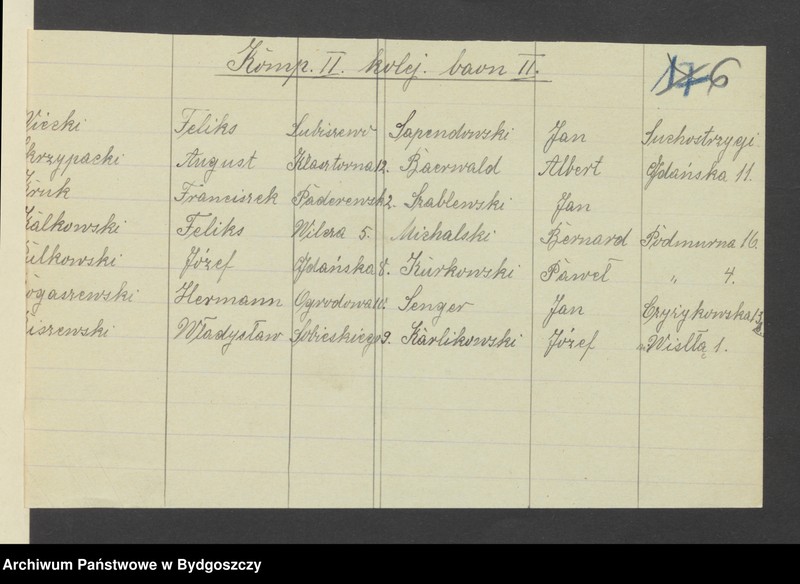 Komp. II. kolej. baon II.
6
Feliks Lubiszewo Sapendowski Jan Suchostrzygi
August Klasztorna 12. Baerwald Albert Gdańska 11.
Franciszek Paderewsk 2. Szablewski Jan
Feliks Wilcza 5. Michalski Bernard Podmurna 16.
Józef Gdańska 8. Kurkowski Paweł " 4.
Hermann Ogrodowa 10. Senger Jan Czyżykowska 13
Władysław Sobieskiego 9. Karlikowski Józef Wisłą 1.
Archiwum Państwowe w Bydgoszczy